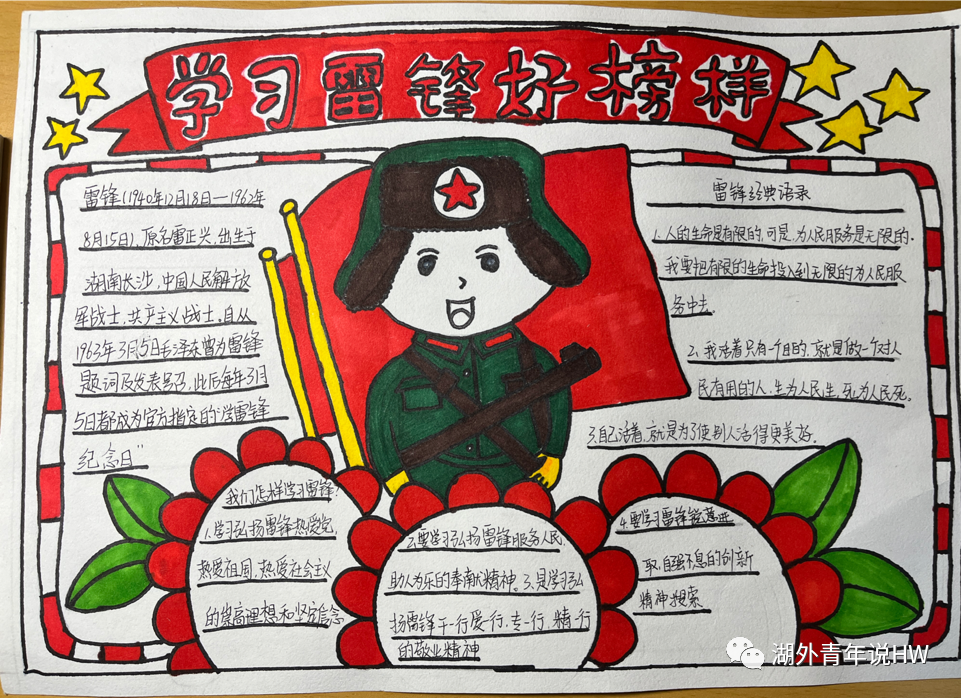 学习雷锋好榜样
雷锋(1940年12月18日—1962年
8月15日),原名雷正兴,出生于
湖南长沙,中国人民解放
军战士,共产主义战士,自从
1963年3月5日毛泽东曾为雷锋
题词及发表号召,此后每年3月
5日都成为官方指定的"学雷锋
纪念日"
雷锋经典语录
1.人的生命是有限的,可是,为人民服务是无限的.
我要把有限的生命投入到无限的为人民服
务中去.
2.我活着只有一个目的,就是做一个对人
民有用的人,生为人民生,死为人民死.
3.自己活着,就是为了使别人活得更美好.
我们怎样学习雷锋?
1.学习弘扬雷锋热爱党,
热爱祖国,热爱社会主义
的崇高理想和坚定信念
2.要学习弘扬雷锋服务人民,
助人为乐的奉献精神.3.要学习弘
扬雷锋干一行爱一行,专一行,精一行
的敬业精神
4.要学习雷锋锐意进
取,自强不息的创新
精神
湖外青年说HW